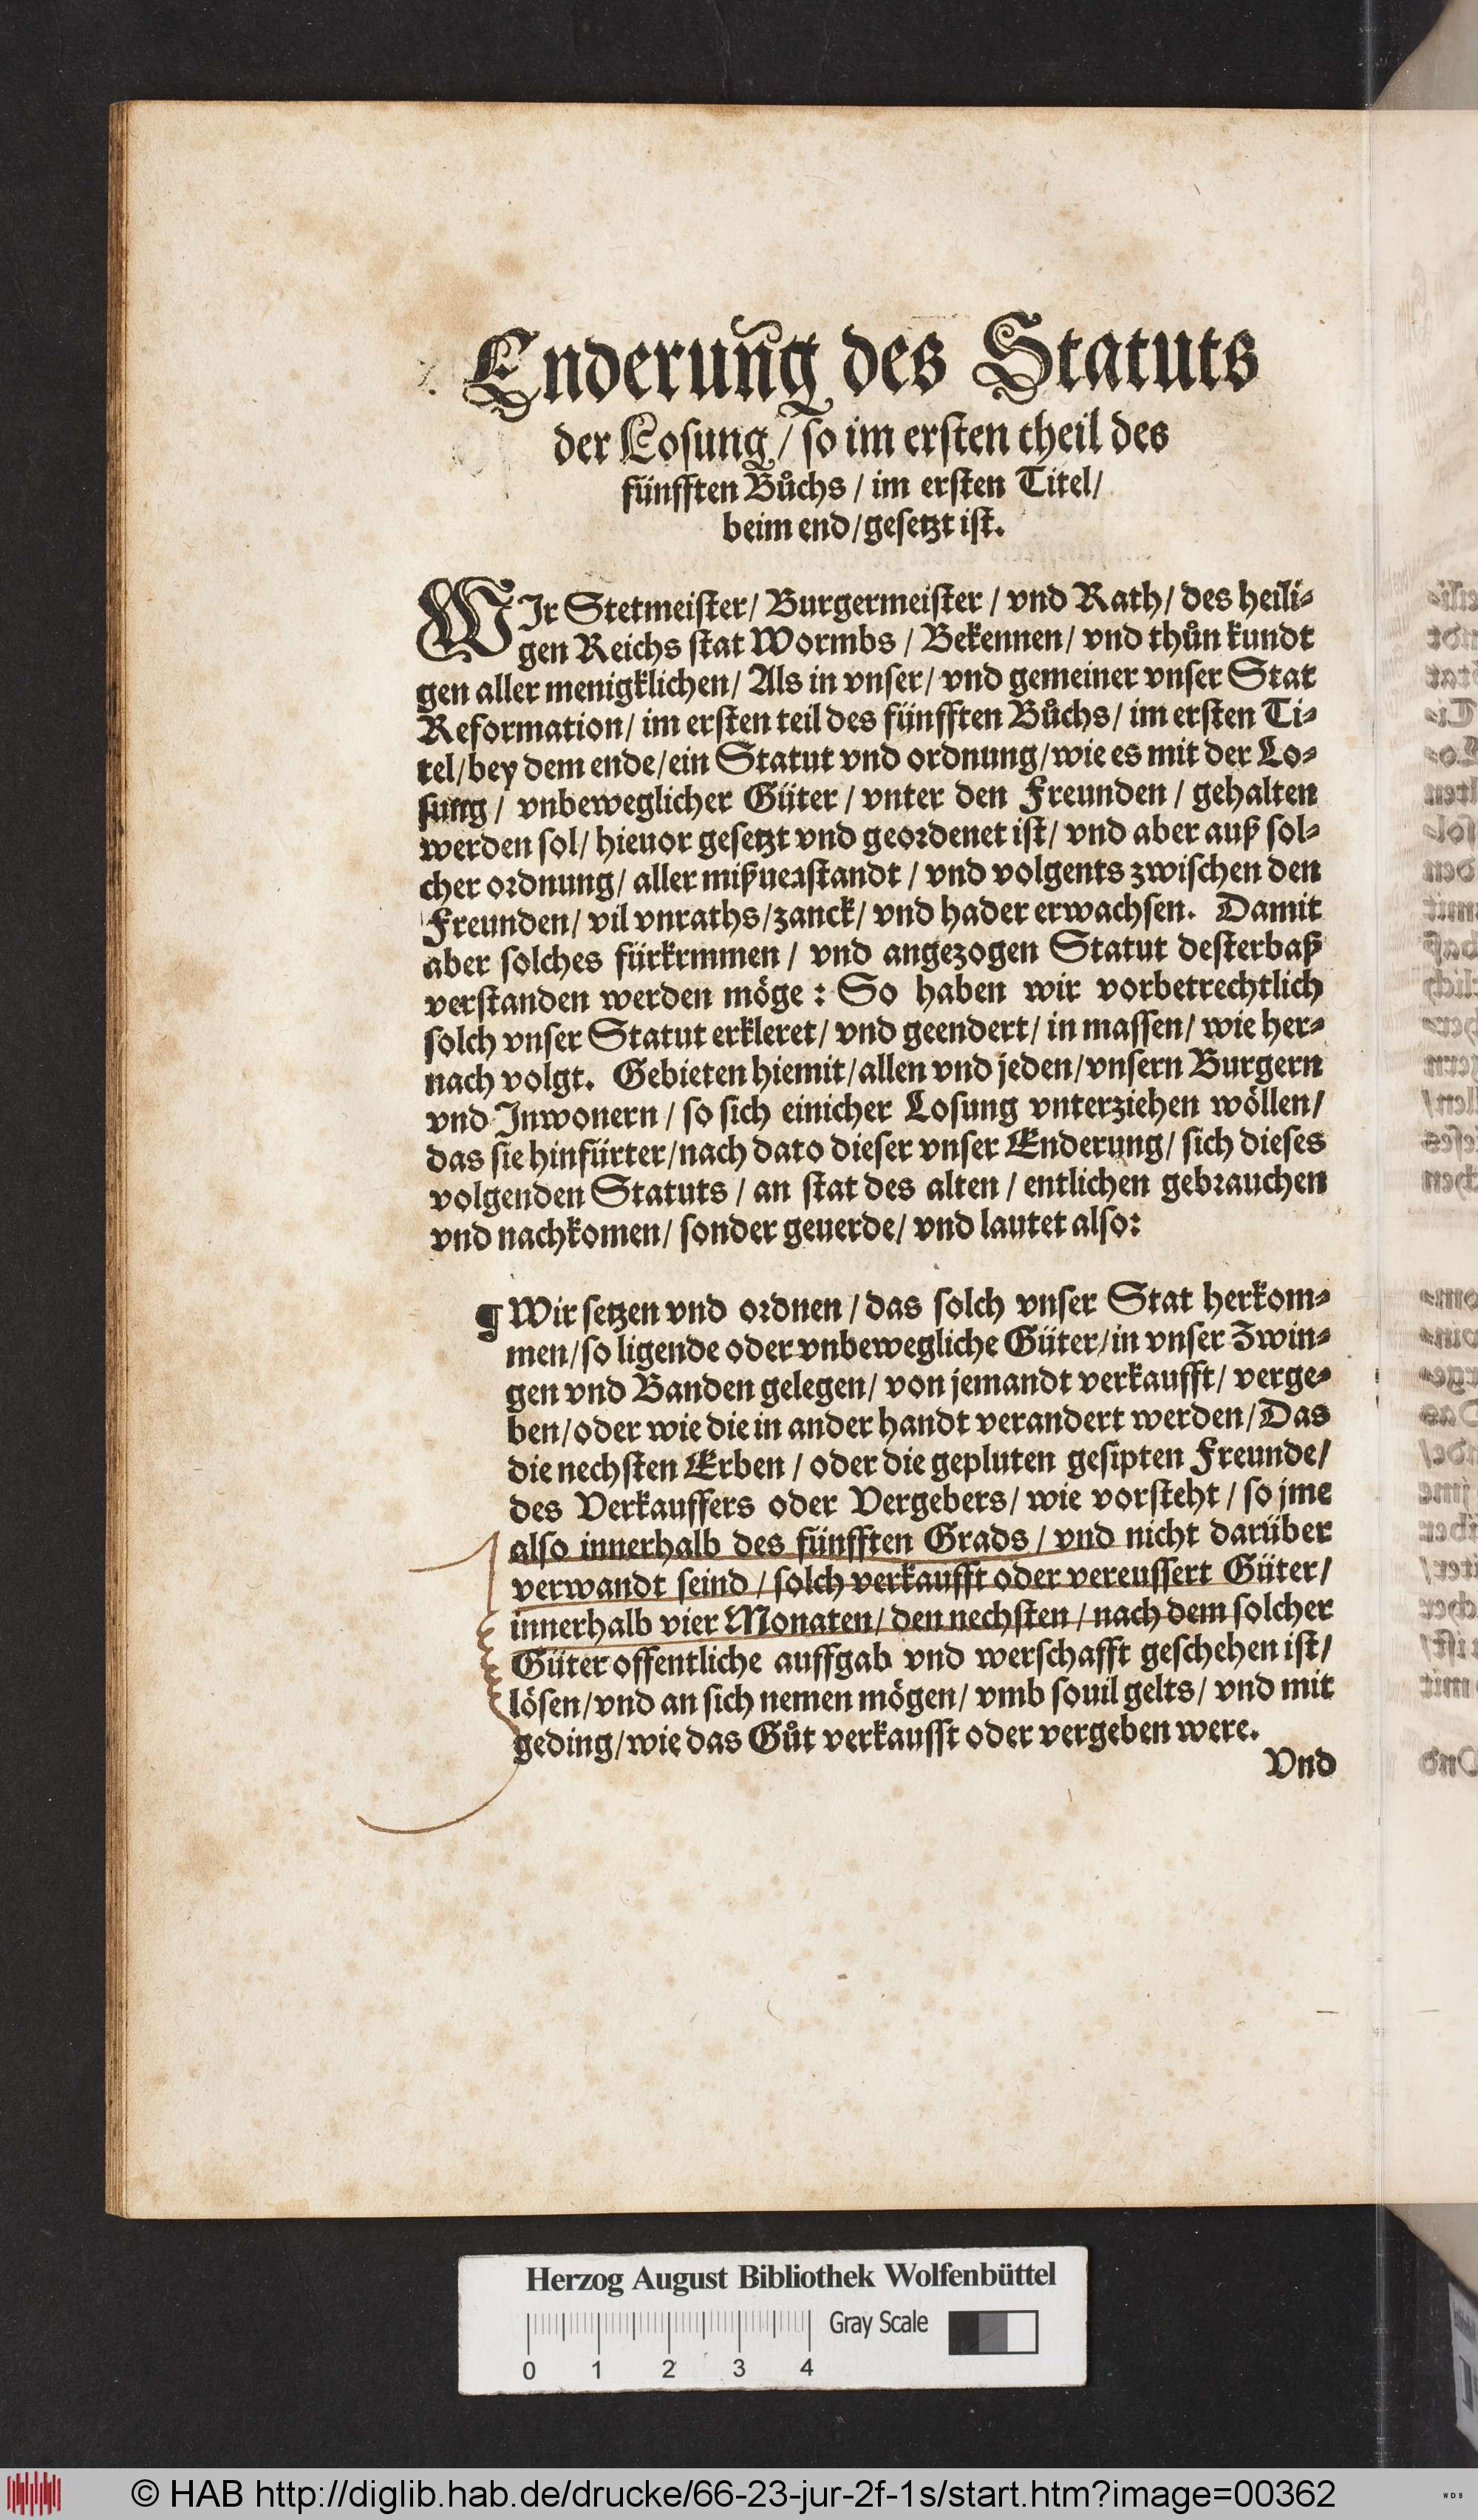 Enderung des Statuts
der Losung / so im ersten theil des
fünfften Bůchs / im ersten Titel /
beim end / gesetzt ist.
WIr Stetmeister / Burgermeister / vnd Rath / des heili⸗
gen Reichs stat Wormbs / Bekennen / vnd thůn kundt
gen aller menigklichen / Als in vnser / vnd gemeiner vnser Stat
Reformation / im ersten teil des fünfften Bůchs / im ersten Ti⸗
tel / bey dem ende / ein Statut vnd ordnung / wie es mit der Lo⸗
sung / vnbeweglicher Güter / vnter den Freunden / gehalten
werden sol / hieuor gesetzt vnd geordenet ist / vnd aber auß sol⸗
cher ordnung / aller mißuerstandt / vnd volgents zwischen den
Freunden / vil vnraths / zanck / vnd hader erwachsen. Damit
aber solches fürkrmmen / vnd angezogen Statut desterbaß
verstanden werden möge : So haben wir vorbetrechtlich
solch vnser Statut erkleret / vnd geendert / in massen / wie her⸗
nach volgt. Gebieten hiemit / allen vnd jeden / vnsern Burgern
vnd Inwonern / so sich einicher Losung vnterziehen wöllen /
das sie hinfürter / nach dato dieser vnser Enderung / sich dieses
volgenden Statuts / an stat des alten / entlichen gebrauchen
vnd nachkomen / sonder geuerde / vnd lautet also:
¶ Wir setzen vnd ordnen / das solch vnser Stat herkom⸗
men / so ligende oder vnbewegliche Güter / in vnser Zwin⸗
gen vnd Banden gelegen / von jemandt verkaufft / verge⸗
ben / oder wie die in ander handt verandert werden / Das
die nechsten Erben / oder die gepluten gesipten Freunde /
des Verkauffers oder Vergebers / wie vorsteht / so jme
also innerhalb des fünfften Grads / vnd nicht darüber
verwandt seind / solch verkaufft oder vereussert Güter /
innerhalb vier Monaten / den nechsten / nach dem solcher
Güter offentliche auffgab vnd werschafft geschehen ist /
lösen / vnd an sich nemen mögen / vmb souil gelts / vnd mit
geding / wie das Gůt verkausst oder vergeben were.
Vnd
Herzog August Bibliothek Wolfenbüttel
Gray Scale
0 1 2 3 4
© HAB http://diglib.hab.de/drucke/66-23-jur-2f-1s/start.htm?image=00362